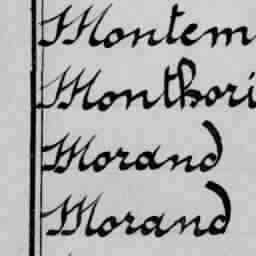 Montem
Monthori
Morand
Morand